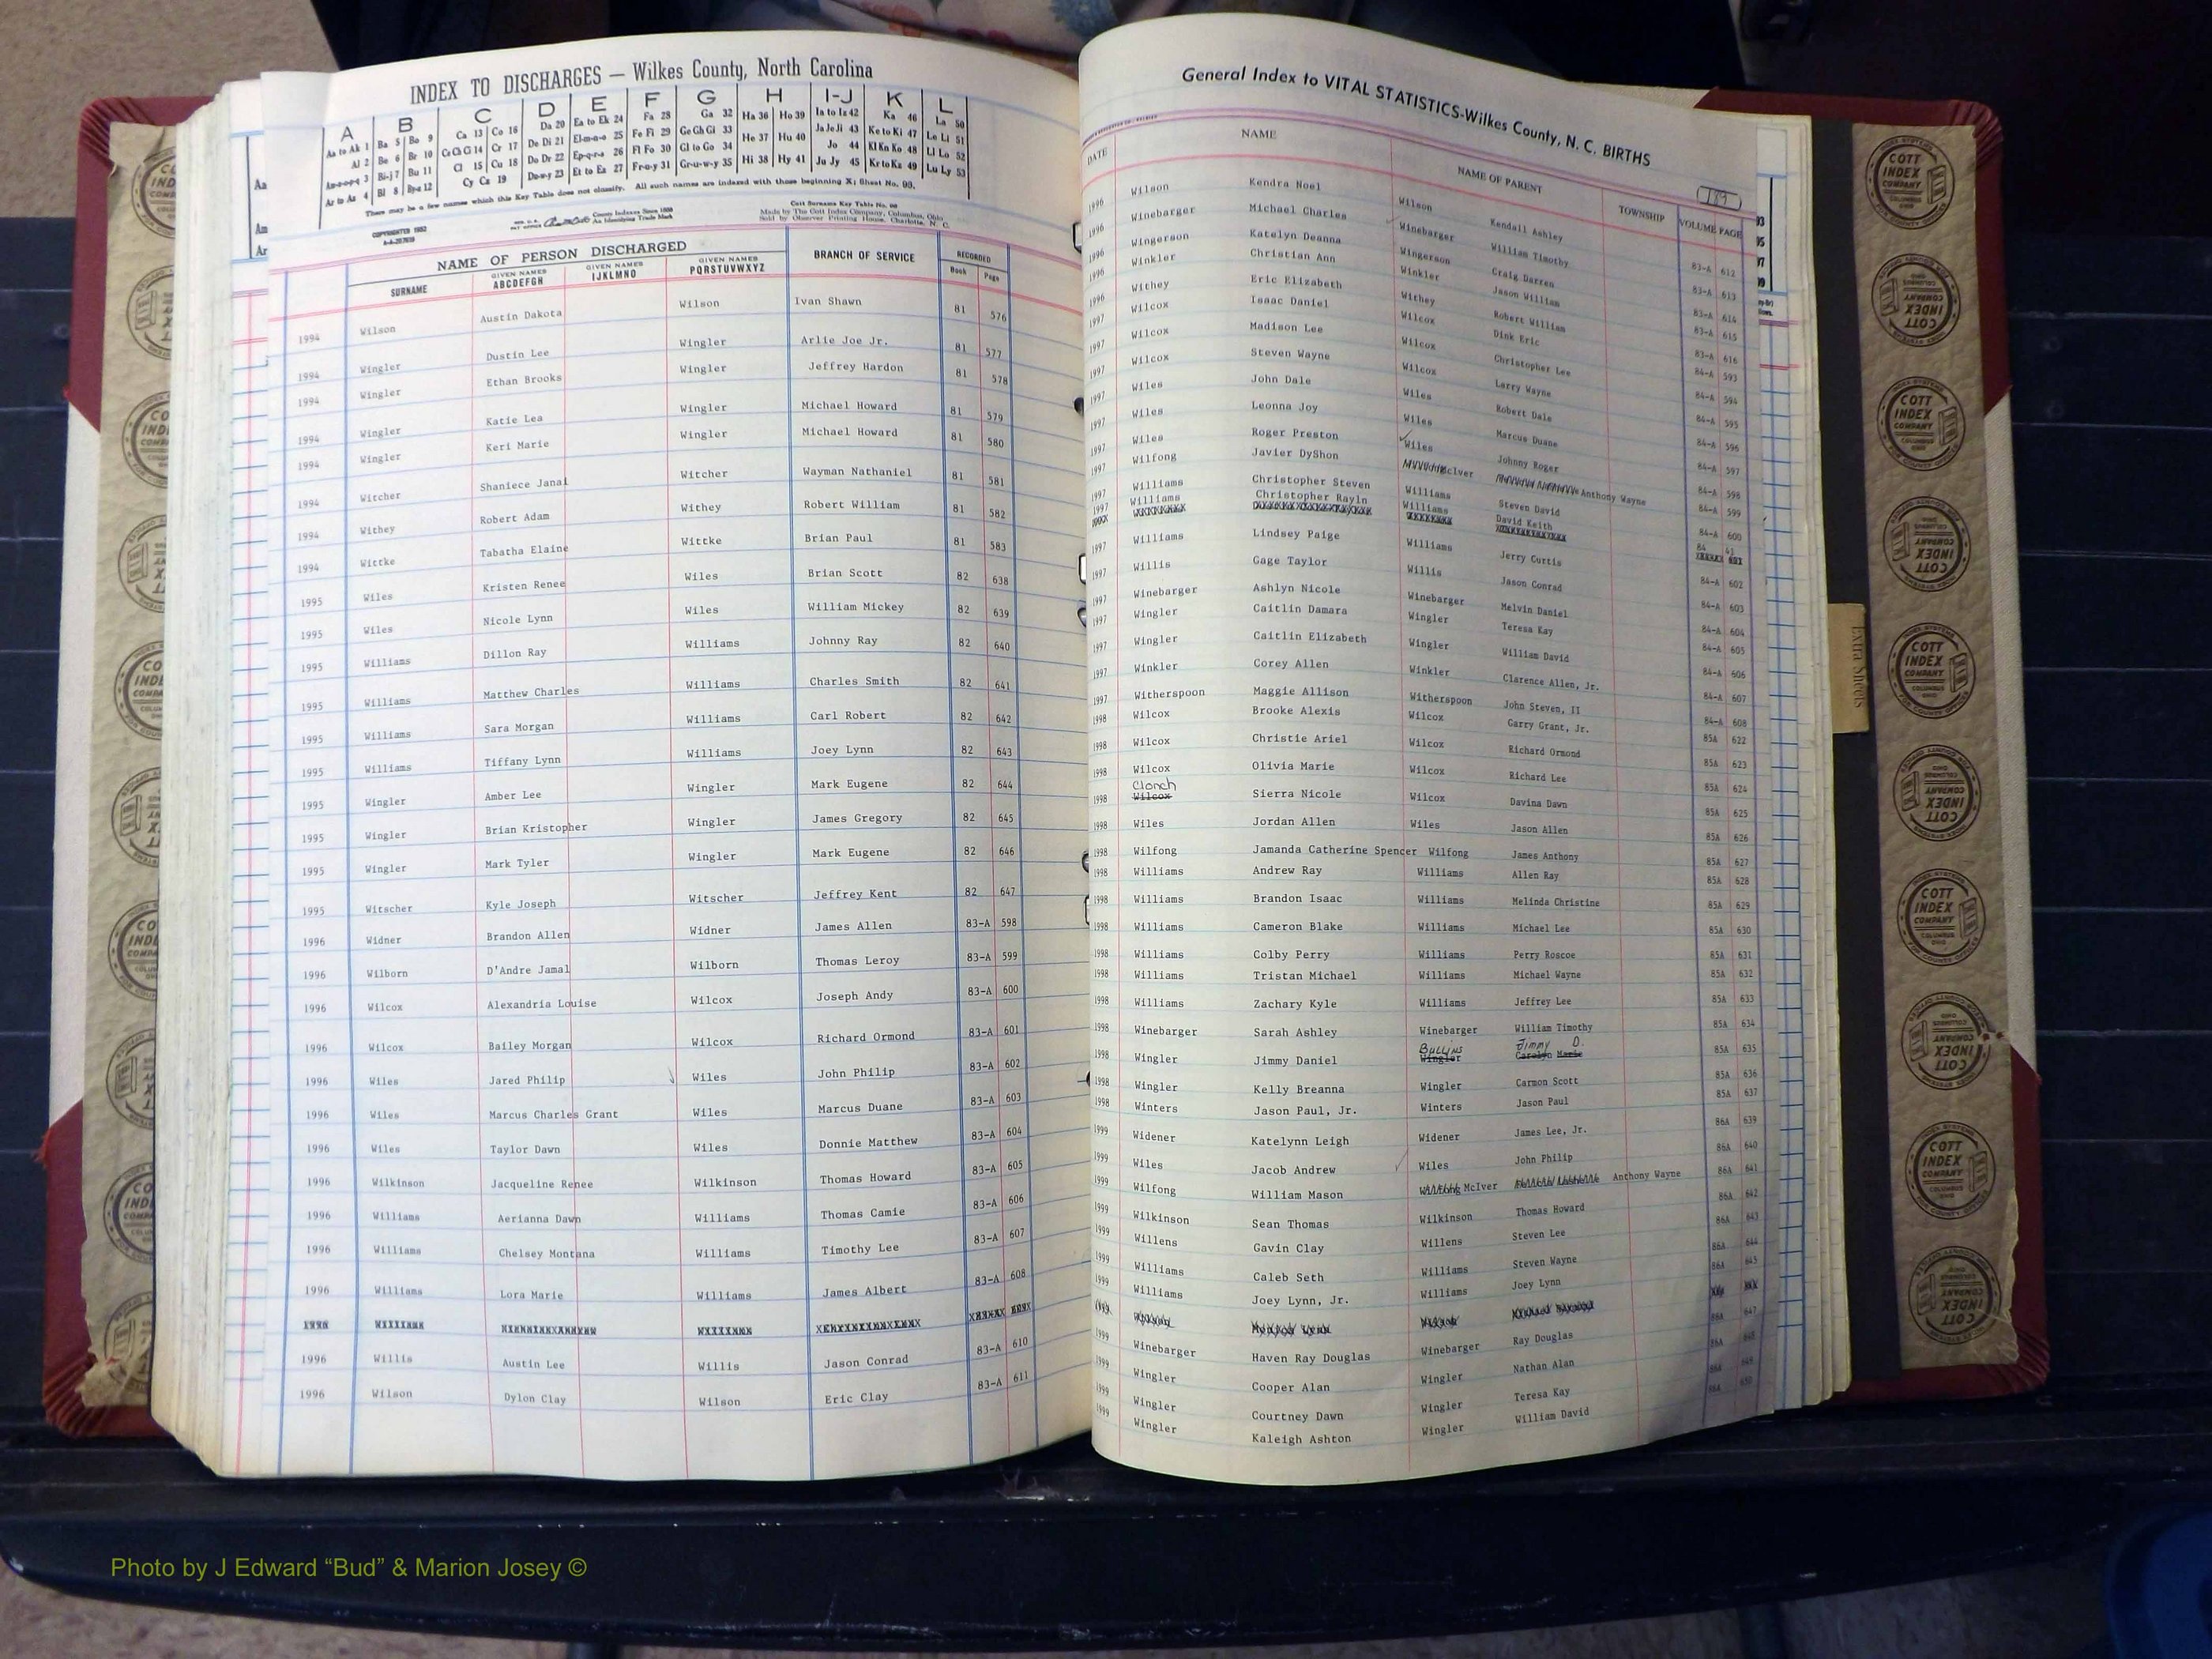 INDEX TO DISCHARGES — Wilkes County, North Carolina
A B C D E F G H I-J K L
Aa to Ak 1 Ba 5 Bo 9 Ca 13 Co 16 Da 20 Ea to Ek 24 Fa 28 Ga 32 Ha 36 Ho 39 Ia to Iz 42 Ka 46 La 50
Al 2 Be 6 Br 10 Ce Ch Ci 14 Cr 17 De Di 21 El-m-n-o 25 Fe Fi 29 Ge Gh Gi 33 He 37 Hu 40 Ja Je Ji 43 Ke to Ki 47 Le Li 51
Am-n-o-p-q 3 Bi-j 7 Bu 11 Cl 15 Cu 18 Do Dr 22 Ep-q-r-s 26 Fl Fo 30 Gl to Go 34 Hi 38 Hy 41 Jo 44 Kl Kn Ko 48 Ll Lo 52
Ar to Az 4 Bl 8 By-z 12 Cy Cz 19 Du-w-y 23 Et to Ez 27 Fr-u-y 31 Gr-u-w-y 35 Ju Jy 45 Kr to Kz 49 Lu Ly 53
There may be a few names which this Key Table does not classify. All such names are indexed with those beginning X; Sheet No. 93.
COPYRIGHTED 1952
County Indexes Since 1888
An Identifying Trade Mark
Cott Surname Key Table No. 98
Made by The Cott Index Company, Columbus, Ohio
Sold by Observer Printing House, Charlotte, N. C.
NAME OF PERSON DISCHARGED BRANCH OF SERVICE RECORDED
SURNAME GIVEN NAMES ABCDEFGH GIVEN NAMES IJKLMNO GIVEN NAMES PQRSTUVWXYZ Book Page
1994 Wilson Austin Dakota Wilson Ivan Shawn 81 576
1994 Wingler Dustin Lee Wingler Arlie Joe Jr. 81 577
1994 Wingler Ethan Brooks Wingler Jeffrey Hardon 81 578
1994 Wingler Katie Lea Wingler Michael Howard 81 579
1994 Wingler Keri Marie Wingler Michael Howard 81 580
1994 Witcher Shaniece Janai Witcher Wayman Nathaniel 81 581
1994 Withey Robert Adam Withey Robert William 81 582
1994 Wittke Tabatha Elaine Wittke Brian Paul 81 583
1995 Wiles Kristen Renee Wiles Brian Scott 82 638
1995 Wiles Nicole Lynn Wiles William Mickey 82 639
1995 Williams Dillon Ray Williams Johnny Ray 82 640
1995 Williams Matthew Charles Williams Charles Smith 82 641
1995 Williams Sara Morgan Williams Carl Robert 82 642
1995 Williams Tiffany Lynn Williams Joey Lynn 82 643
1995 Wingler Amber Lee Wingler Mark Eugene 82 644
1995 Wingler Brian Kristopher Wingler James Gregory 82 645
1995 Wingler Mark Tyler Wingler Mark Eugene 82 646
1995 Witscher Kyle Joseph Witscher Jeffrey Kent 82 647
1996 Widner Brandon Allen Widner James Allen 83-A 598
1996 Wilborn D'Andre Jamal Wilborn Thomas Leroy 83-A 599
1996 Wilcox Alexandria Louise Wilcox Joseph Andy 83-A 600
1996 Wilcox Bailey Morgan Wilcox Richard Ormond 83-A 601
1996 Wiles Jared Philip Wiles John Philip 83-A 602
1996 Wiles Marcus Charles Grant Wiles Marcus Duane 83-A 603
1996 Wiles Taylor Dawn Wiles Donnie Matthew 83-A 604
1996 Wilkinson Jacqueline Renee Wilkinson Thomas Howard 83-A 605
1996 Williams Aerianna Dawn Williams Thomas Camie 83-A 606
1996 Williams Chelsey Montana Williams Timothy Lee 83-A 607
1996 Williams Lora Marie Williams James Albert 83-A 608
1996 Willis Austin Lee Willis Jason Conrad 83-A 610
1996 Wilson Dylon Clay Wilson Eric Clay 83-A 611
General Index to VITAL STATISTICS-Wilkes County, N. C. BIRTHS
189
DATE NAME NAME OF PARENT TOWNSHIP VOLUME PAGE
1996 Wilson Kendra Noel Wilson Kendall Ashley 83-A 612
1996 Winebarger Michael Charles Winebarger William Timothy 83-A 613
1996 Wingerson Katelyn Deanna Wingerson Craig Darren 83-A 614
1996 Winkler Christian Ann Winkler Jason William 83-A 615
1996 Withey Eric Elizabeth Withey Robert William 83-A 616
1997 Wilcox Isaac Daniel Wilcox Dink Eric 84-A 593
1997 Wilcox Madison Lee Wilcox Christopher Lee 84-A 594
1997 Wilcox Steven Wayne Wilcox Larry Wayne 84-A 595
1997 Wiles John Dale Wiles Robert Dale 84-A 596
1997 Wiles Leonna Joy Wiles Marcus Duane 84-A 597
1997 Wiles Roger Preston Wiles Johnny Roger 84-A 598
1997 Wilfong Javier DyShon McIver Anthony Wayne 84-A 599
1997 Williams Christopher Steven Williams Steven David 84-A 600
1997 Williams Christopher Rayln Williams David Keith 84 41
1997 Williams Lindsey Paige Williams Jerry Curtis 84-A 602
1997 Willis Gage Taylor Willis Jason Conrad 84-A 603
1997 Winebarger Ashlyn Nicole Winebarger Melvin Daniel 84-A 604
1997 Wingler Caitlin Damara Wingler Teresa Kay 84-A 605
1997 Wingler Caitlin Elizabeth Wingler William David 84-A 606
1997 Winkler Corey Allen Winkler Clarence Allen, Jr. 84-A 607
1997 Witherspoon Maggie Allison Witherspoon John Steven, II 84-A 608
1998 Wilcox Brooke Alexis Wilcox Garry Grant, Jr. 85A 622
1998 Wilcox Christie Ariel Wilcox Richard Ormond 85A 623
1998 Wilcox Olivia Marie Wilcox Richard Lee 85A 624
Clonch
1998 Wilcox Sierra Nicole Wilcox Davina Dawn 85A 625
1998 Wiles Jordan Allen Wiles Jason Allen 85A 626
1998 Wilfong Jamanda Catherine Spencer Wilfong James Anthony 85A 627
1998 Williams Andrew Ray Williams Allen Ray 85A 628
1998 Williams Brandon Isaac Williams Melinda Christine 85A 629
1998 Williams Cameron Blake Williams Michael Lee 85A 630
1998 Williams Colby Perry Williams Perry Roscoe 85A 631
1998 Williams Tristan Michael Williams Michael Wayne 85A 632
1998 Williams Zachary Kyle Williams Jeffrey Lee 85A 633
1998 Winebarger Sarah Ashley Winebarger William Timothy 85A 634
Bullins Jimmy D.
1998 Wingler Jimmy Daniel Wingler Carolyn Marie 85A 635
1998 Wingler Kelly Breanna Wingler Carmon Scott 85A 636
1998 Winters Jason Paul, Jr. Winters Jason Paul 85A 637
1999 Widener Katelynn Leigh Widener James Lee, Jr. 86A 639
1999 Wiles Jacob Andrew Wiles John Philip 86A 640
1999 Wilfong William Mason McIver Anthony Wayne 86A 641
1999 Wilkinson Sean Thomas Wilkinson Thomas Howard 86A 642
1999 Willens Gavin Clay Willens Steven Lee 86A 643
1999 Williams Caleb Seth Williams Steven Wayne 86A 644
1999 Williams Joey Lynn, Jr. Williams Joey Lynn 86A 645
1999 Winebarger Haven Ray Douglas Winebarger Ray Douglas 86A 647
1999 Wingler Cooper Alan Wingler Nathan Alan 86A 648
1999 Wingler Courtney Dawn Wingler Teresa Kay 86A 649
1999 Wingler Kaleigh Ashton Wingler William David 86A 650
Extra Sheets
COTT INDEX COMPANY
Photo by J Edward “Bud” & Marion Josey ©